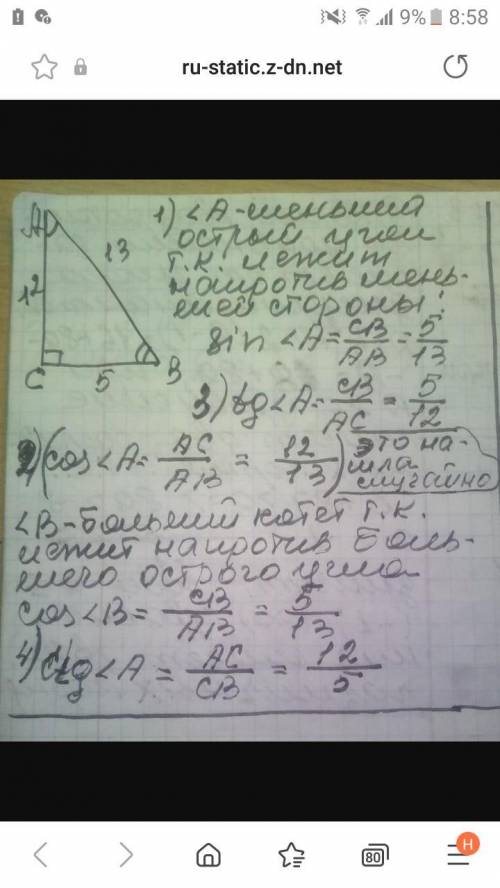 9% 8:58
ru-static.z-dn.net
1) <A-меньший
острый угол
т.к. лежит
напротив мень-
шей стороны:
A
13
12
C
5
B
sin <A = CB/AB = 5/13
3) tg <A = CB/AC = 5/12
2) (cos <A = AC/AB = 12/13) это на-
шла
случайно
<B-больший катет т.к.
лежит напротив боль-
шего острого угла
cos <B = CB/AB = 5/13
4) ctg <A = AC/CB = 12/5
80
H